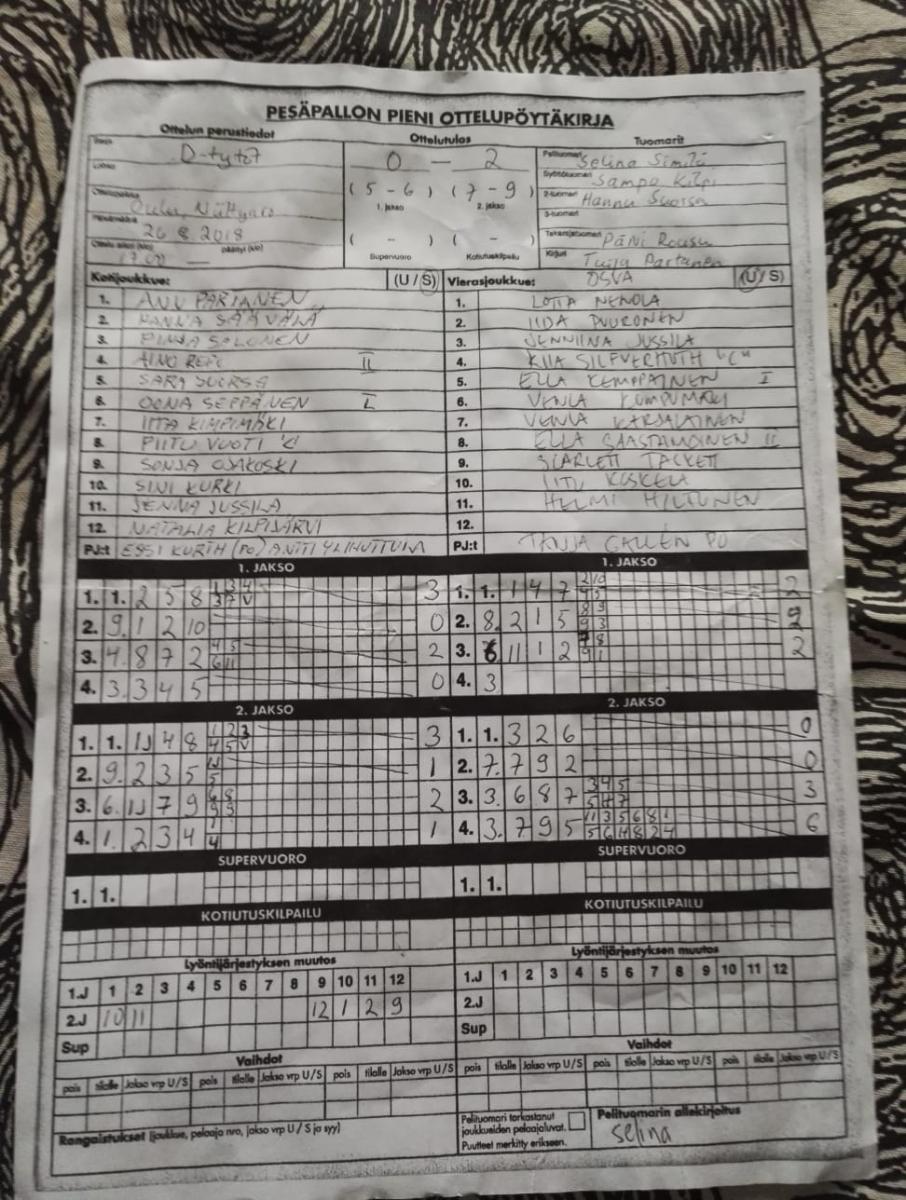 PESÄPALLON PIENI OTTELUPÖYTÄKIRJA
Ottelun perustiedot Ottelutulos Tuomarit
D-tytöt 0 – 2 Pelituomari Selina Similä
Syöttötuomari Sampo Kilpi
(5 - 6) (7 - 9) 2-tuomari Hannu Suorsa
1. jakso 2. jakso 3-tuomari
Oulu,
26.8.2018 ( - ) ( - ) Takarajatuomari Päivi Rousu
17.00 Supervuoro Kotiutuskilpailu Kirjuri Tuija Partanen
Kotijoukkue: (U / S) Vierasjoukkue: OSVA (U / S)
1. ANU PARTANEN 1. LOTTA NEVOLA
2. HANNA SÄÄVÄLÄ 2. IIDA PUURONEN
3. PINJA SALONEN 3. JENNIINA JUSSILA
4. AINO REPO II 4. KIIA SILFVERHUTH "C"
5. SARA SUORSA 5. ELLA KEMPPAINEN I
6. OONA SEPPÄNEN I 6. VENLA KUMPUMÄKI
7. IITA KIMPIMÄKI 7. VENLA KARJALAINEN
8. PIITU VUOTI 'C' 8. ELLA SAASTAMOINEN II
9. SONJA OJAKOSKI 9. SCARLETT TACKETT
10. SINI KURKI 10. IITU KOSKELA
11. JENNA JUSSILA 11. HELMI HILTUNEN
12. NATALIA KILPIJÄRVI 12.
PJ:t ESSI KURTH (PO) ANTTI YLIHUTTULA PJ:t TANJA GALLEN PO
1. JAKSO 1. JAKSO
1. 1. 2 5 8 1 3 4 3 7 V 3 1. 1. 1 4 7 2 10 4 5 2
2. 9. 1 2 10 0 2. 8. 2 1 5 8 9 9 3 2
3. 4. 8 7 2 4 5 6 11 2 3. 6 11 1 2 7 8 9 1 2
4. 3. 3 4 5 0 4. 3
2. JAKSO 2. JAKSO
1. 1. 11 4 8 1 2 3 4 5 V 3 1. 1. 3 2 6 0
2. 9. 2 3 5 11 5 1 2. 7. 7 9 2 0
3. 6. 11 7 9 6 8 9 9 2 3. 3. 6 8 7 3 4 5 5 11 7 3
4. 1. 2 3 4 1 4 1 4. 3. 7 9 5 11 3 5 6 8 1 5 6 11 8 2 4 6
SUPERVUORO SUPERVUORO
1. 1. 1. 1.
KOTIUTUSKILPAILU KOTIUTUSKILPAILU
Lyöntijärjestyksen muutos Lyöntijärjestyksen muutos
1.J 1 2 3 4 5 6 7 8 9 10 11 12 1.J 1 2 3 4 5 6 7 8 9 10 11 12
2.J 10 11 12 1 2 9 2.J
Sup Sup
Vaihdot Vaihdot
pois tilalle Jakso vrp U/S pois tilalle Jakso vrp U/S pois tilalle Jakso vrp U/S pois tilalle Jakso vrp U/S pois tilalle Jakso vrp U/S pois tilalle Jakso vrp U/S
Rangaistukset (joukkue, pelaaja nro, jakso vrp U / S ja syy) Pelituomari tarkastanut joukkueiden pelaajaluvat. Pelituomarin allekirjoitus
Puutteet merkitty erikseen. Selina